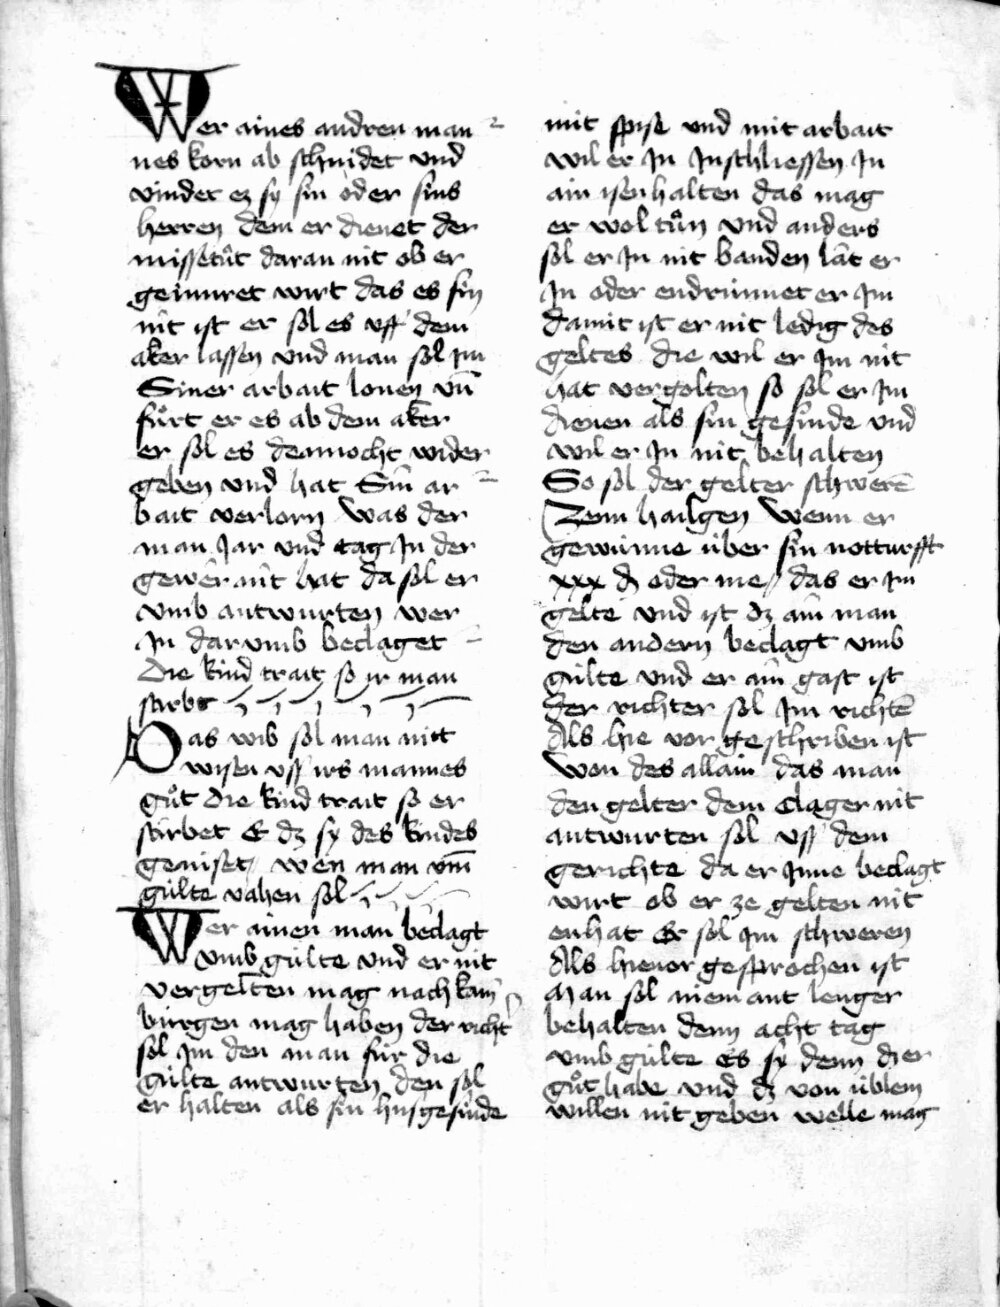 Wer aines andren man
nes korn ab schnidet und
vindet ez sy sin oder sins
herren dem er dienet der
missetůt daran nit ob er
geinnret wirt das es sin
nit ist er sol es uff dem
aker lassen und man sol im
Siner arbait lonen vn̄
fůrt er es ab dem aker
er sol es dennocht wider
geben und hat Sin ar
bait verlorn Was der
man Jar und tag In der
gewer nit hat da sol er
vmb antwurten wer
In darumb beclaget
Die kind trait so ir man
stirbt
Das wib sol man nitt
wysen uss irs mannes
gůt die kind trait so er
stirbet E dz sy des kindes
geniset wen man vm̄
gulte vahen sol
Wer ainen man beclagt
vmb gulte und er nit
vergelten mag noch kain
burgen mag haben der richt
sol im den man für die
gulte antwurten den sol
er halten als sin husgesinde
mit spise und mit arbait
wil er In Inschliessen In
ain isenhalten das mag
er wol tůn und anders
sol er In nit banden lat er
In oder endrinnet er Im
damit ist er nit ledig des
geltes die wil er im nit
hat vergolten so sol er Im
dienen als sin gesinde und
wil er In nit behalten
So sol der gelter schwerē
Zenn hailgen Wenn er
gewunne über sin notturfft
xxx d oder me das er im
gelte und ist dz ain man
den andern beclagt vmb
gulte und er ain gast ist
der richter sol Im richtē
Als hie vor geschriben ist
Won des allain das man
den gelter dem Clager nit
antwurten sol uss dem
gerichte da er Inne beclagt
wirt ob er ze gelten nit
enhat Er sol im schweren
Als hievor gesprochen ist
Man sol niemant lenger
behalten denn acht tag
vmb gulte Es sy denn d er
gůt habe und dz von üblem
willen nit geben welle mag